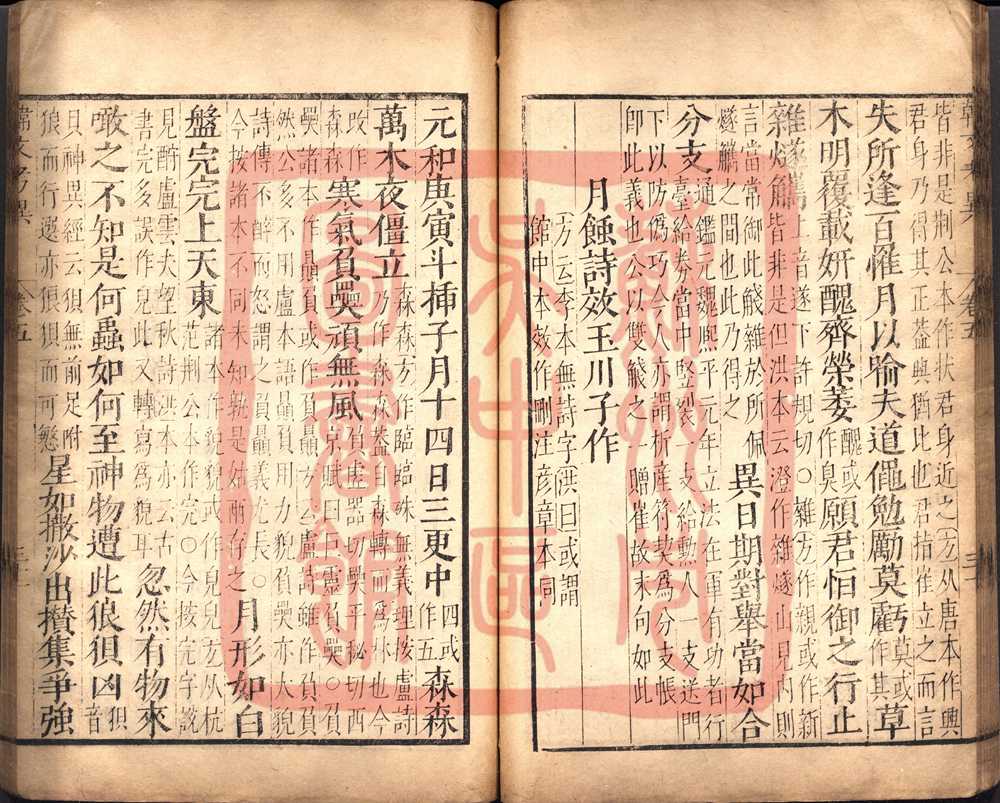 韓文考異　卷五
皆非是荆公本作扶君身近之方从唐本作興
君身乃得其正蓋興猶比也君指崔立之而言
失所逢百罹月以喻夫道僶勉勵莫虧莫或作其草
木明覆載妍醜齊榮萎醜或作臭願君恒御之行止
雜燧觿上音遂下許規切○雜方作親或作新皆非是但洪本云澄作雜燧山見内則
言當常御此觿雜於所佩燧觿之間也此乃得之異日期對舉當如合
分支通鑑元魏熙平元年立法在軍有功者行臺給券當中豎裂一支給勲人一支送門
下以防偽巧今人亦謂析産符契為分支帳即此義也公以雙觿之一贈崔故末句如此
月蝕詩效玉川子作
方云李本無詩字洪曰或謂館中本效作刪注彦章本同
元和庚寅斗揷子月十四日三更中四或作五森森
萬木夜僵立森森方作臨臨殊無義理按盧詩乃作森森蓋自森轉而為林也今
改作森森寒氣屓奰頑無風屓虚器切奰平秘切西京賦曰巨靈屓奰○
奰諸本作贔屓或作屓贔方云盧詩雖作屓贔然公多不用盧本語贔屓用力貌屓奰亦大貌
詩傳不醉而怒謂之屓贔義尤長○今按諸本不同未知孰是姑兩存之月形如白
盤完完上天東諸本作完完或作皃皃方从杭范荆公本作完○今按完字說
見酧盧雲夫望秋詩洪本亦云古書完多誤作皃此又轉寫為貌耳忽然有物來
噉之不知是何蟲如何至神物遭此狼狽凶狽音
貝神異經云狽無前足附狼而行遷亦狼狽而可憗星如撒沙出攅集爭強
韓文考異　卷五